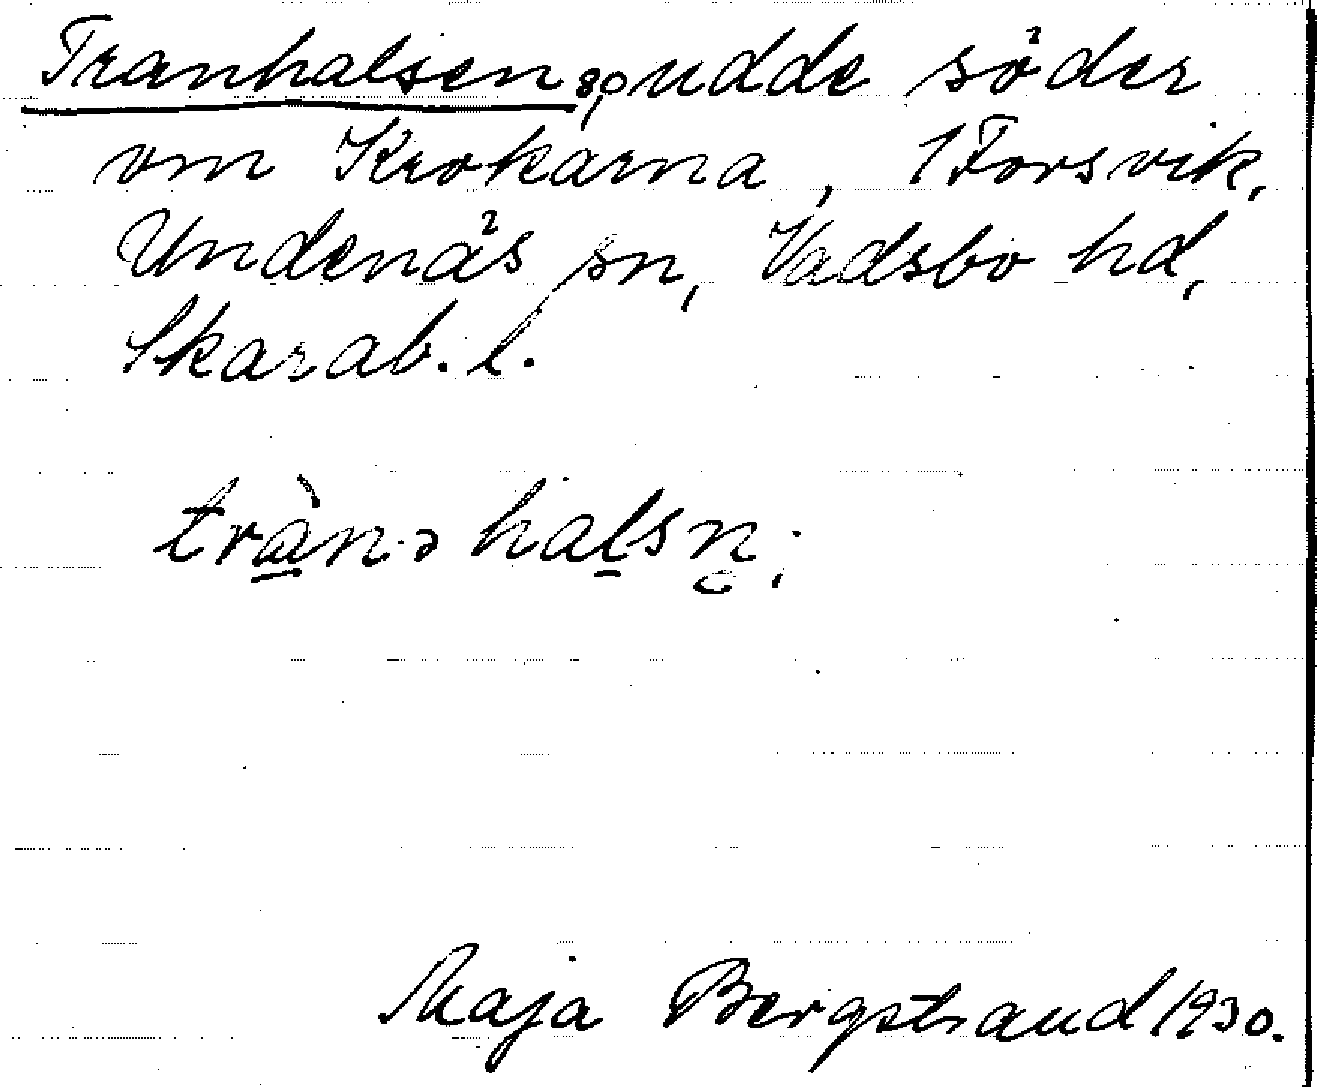 Tranhalsen, sp udde söder
om Krokarna, 1 Forsvik,
Undenäs sn, Vadsbo hd,
Skarab. l.
trà̱n·ə hal̠sn̥;
Maja Bergstrand 1930.